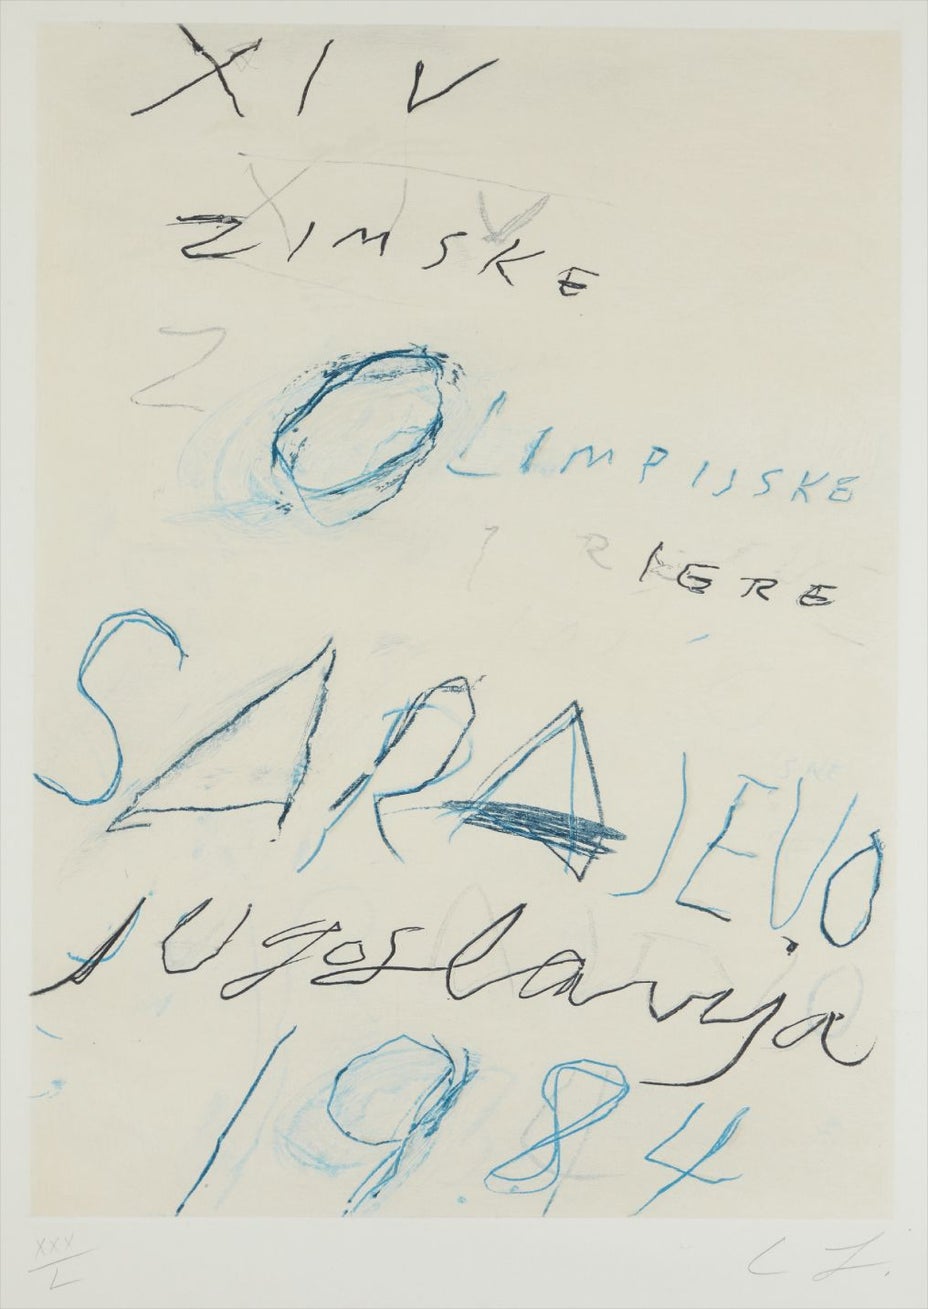 XIV
XIV
ZIMSKE
Z
OLIMPIJSKE
R IERE
SARAJEVO
Jugoslavija
1984
XXX
L